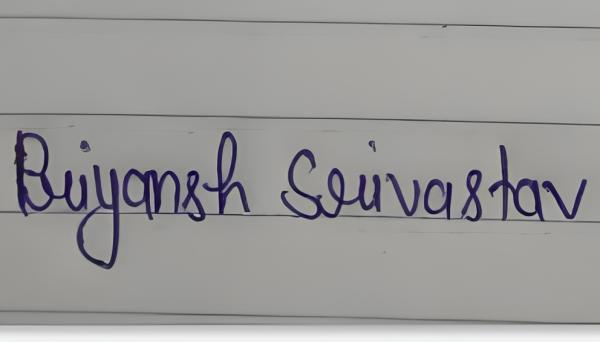 Priyansh Srivastav